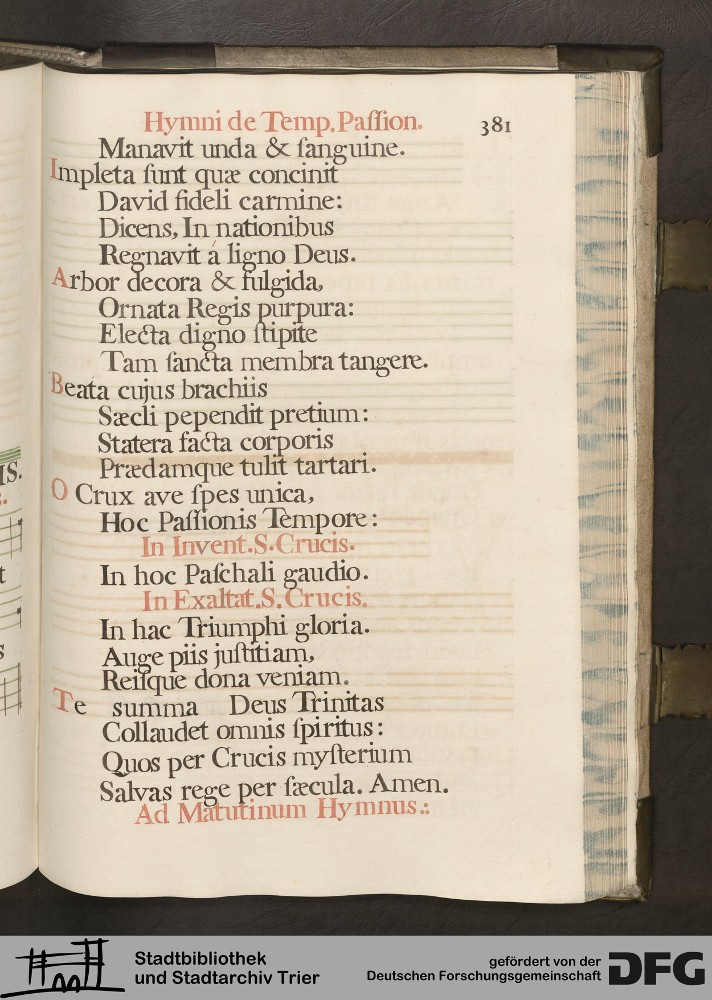 Hymni de Temp. Paſſion. 381
Manavit unda & ſanguine.
Impleta ſunt quæ concinit
David fideli carmine:
Dicens, In nationibus
Regnavit á ligno Deus.
Arbor decora & fulgida,
Ornata Regis purpura:
Electa digno ſtipite
Tam ſancta membra tangere.
Beata cujus brachiis
Sæcli pependit pretium:
Statera facta corporis
Prædamque tulit tartari.
O Crux ave ſpes unica,
Hoc Paſſionis Tempore:
In Invent. S. Crucis.
In hoc Paſchali gaudio.
In Exaltat. S. Crucis.
In hac Triumphi gloria.
Auge piis juſtitiam,
Reiſque dona veniam.
Te summa Deus Trinitas
Collaudet omnis ſpiritus:
Quos per Crucis myſterium
Salvas rege per ſæcula. Amen.
Ad Matutinum Hymnus.:
IS.
t
s
Stadtbibliothek
und Stadtarchiv Trier
gefördert von der
Deutschen Forschungsgemeinschaft
DFG